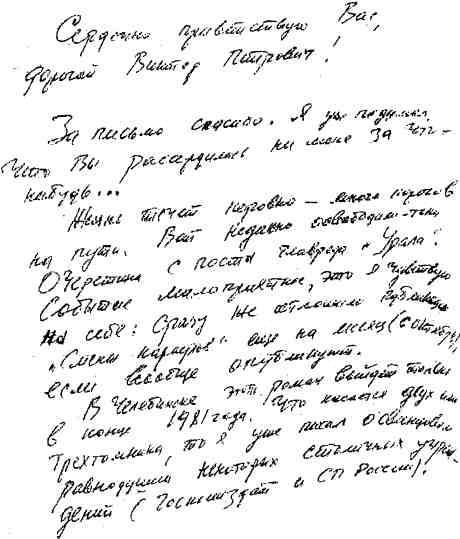 Сердечно приветствую Вас,
дорогой Виктор Петрович!
За письмо спасибо. Я уже подумал,
что Вы рассердились на меня за что-
нибудь...
Жизнь течет неровно – много порогов
на пути. Вот недавно освободили-таки
Очеретина с поста главреда "Урала".
Событие малоприятное, это я чувствую
на себе: сразу же отложили публикацию
"Смены караулов" еще на месяц (с октября),
если вообще опубликуют.
В Челябинске этот роман выйдет только
в конце 1981 года. Что касается двух или
трехтомника, то я уже писал о
равнодушии некоторых столичных учреж-
дений (Госкомиздат и СП России).